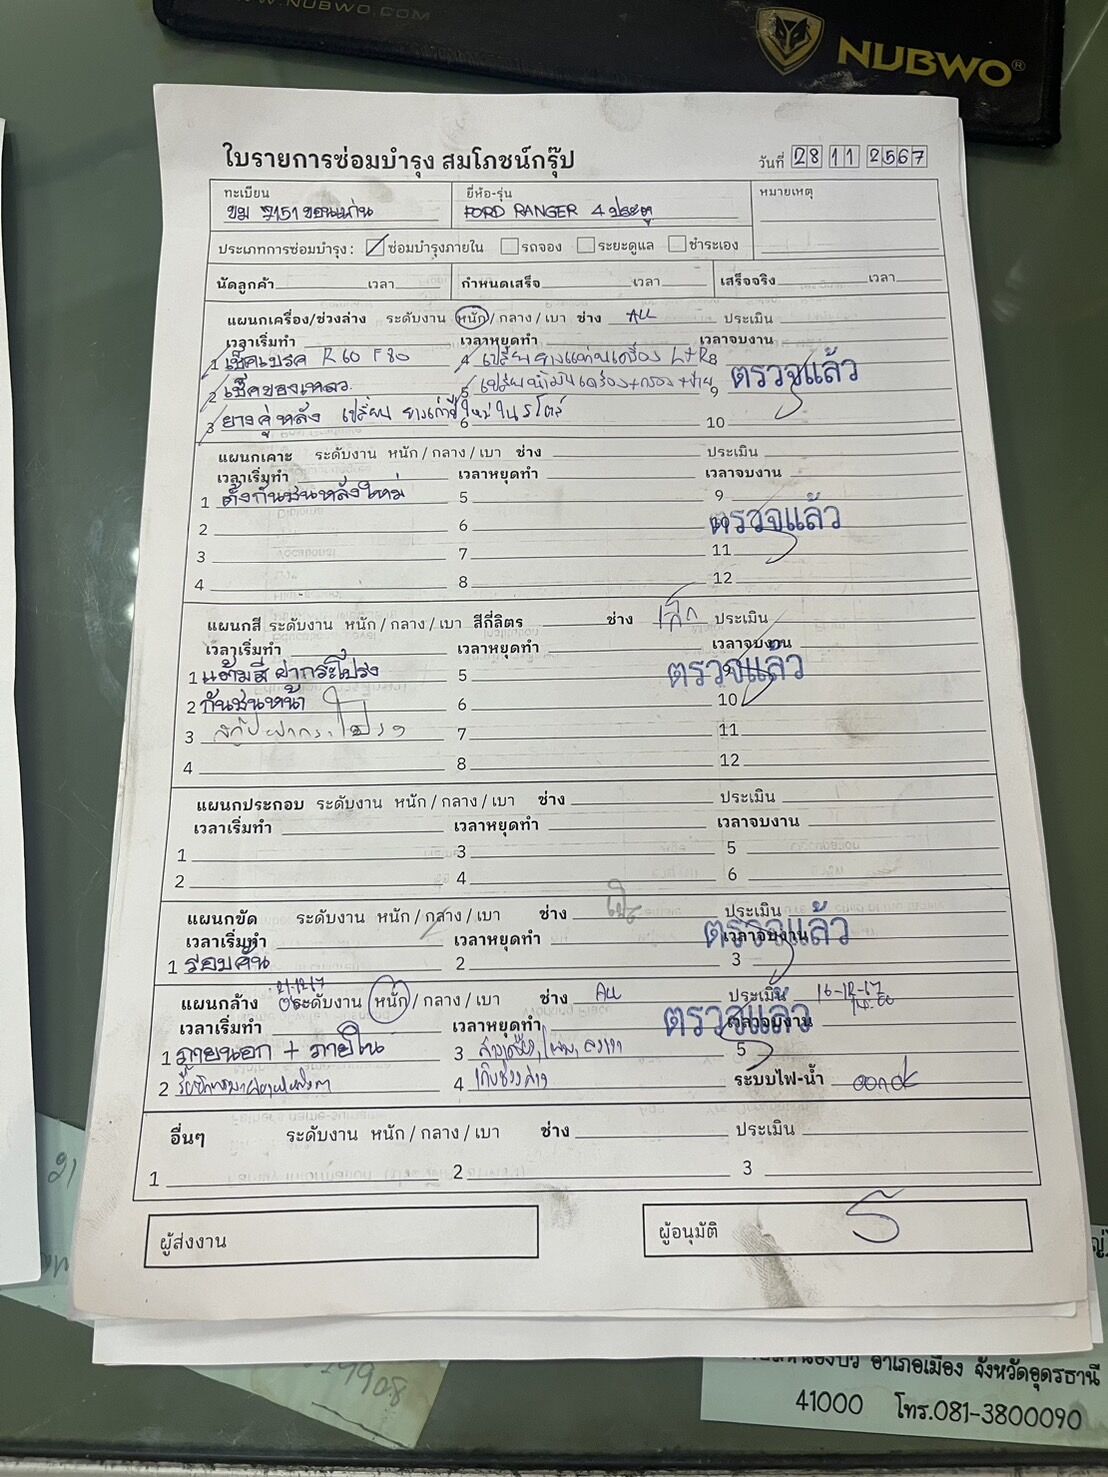 WWW.NUBWO.COM
NUBWO®
ใบรายการซ่อมบำรุง สมโภชน์กรุ๊ป
วันที่ 28 11 2567
ทะเบียน ยี่ห้อ-รุ่น หมายเหตุ
ขอนแก่น FORD RANGER 4 ประตู
ประเภทการซ่อมบำรุง: ซ่อมบำรุงภายใน รถจอง ระยะดูแล ชำระเอง
นัดลูกค้า เวลา กำหนดเสร็จ เวลา เสร็จจริง เวลา
แผนกเครื่อง/ช่วงล่าง ระดับงาน หนัก / กลาง / เบา ช่าง ALL ประเมิน
เวลาเริ่มทำ เวลาหยุดทำ เวลาจบงาน
1 เช็คเบรค R 60 F 80 4 เปลี่ยนยางแท่นเครื่อง L+R 8
ตรวจแล้ว
2 เช็คของเหลว 5 เปลี่ยนน้ำมันเครื่อง+กรอง 9
3 ยางคู่หลัง เปลี่ยน 6 10
แผนกเคาะ ระดับงาน หนัก / กลาง / เบา ช่าง ประเมิน
เวลาเริ่มทำ เวลาหยุดทำ เวลาจบงาน
1 ตั้งกันชนหลังใหม่ 5 9
2 6 10 ตรวจแล้ว
3 7 11
4 8 12
แผนกสี ระดับงาน หนัก / กลาง / เบา สีกี่ลิตร ช่าง ประเมิน
เวลาเริ่มทำ เวลาหยุดทำ เวลาจบงาน
1 แต้มสี ฝากระโปรง 5 9 ตรวจแล้ว
2 กันชนหน้า 6 10
3 7 11
4 8 12
แผนกประกอบ ระดับงาน หนัก / กลาง / เบา ช่าง ประเมิน
เวลาเริ่มทำ เวลาหยุดทำ เวลาจบงาน
1 3 5
2 4 6
แผนกขัด ระดับงาน หนัก / กลาง / เบา ช่าง ประเมิน
เวลาเริ่มทำ เวลาหยุดทำ เวลาจบงาน ตรวจแล้ว
1 รอบคัน 2 3
แผนกล้าง ระดับงาน หนัก / กลาง / เบา ช่าง ALL ประเมิน 16-12-67
เวลาเริ่มทำ เวลาหยุดทำ เวลาจบงาน ตรวจแล้ว
1 ภายนอก + ภายใน 3 5
2 4 เก็บช่วงล่าง ระบบไฟ-น้ำ
อื่นๆ ระดับงาน หนัก / กลาง / เบา ช่าง ประเมิน
1 2 3
ผู้ส่งงาน ผู้อนุมัติ
อำเภอเมือง จังหวัดอุดรธานี
41000 โทร.081-3800090